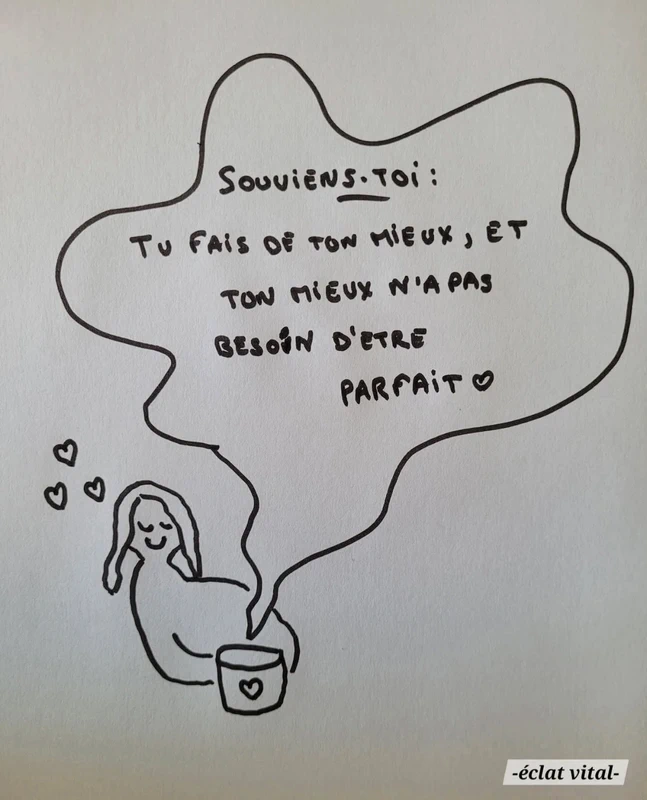 SOUVIENS-TOI :
TU FAIS DE TON MIEUX, ET
TON MIEUX N'A PAS
BESOIN D'ETRE
PARFAIT ♡
-éclat vital-